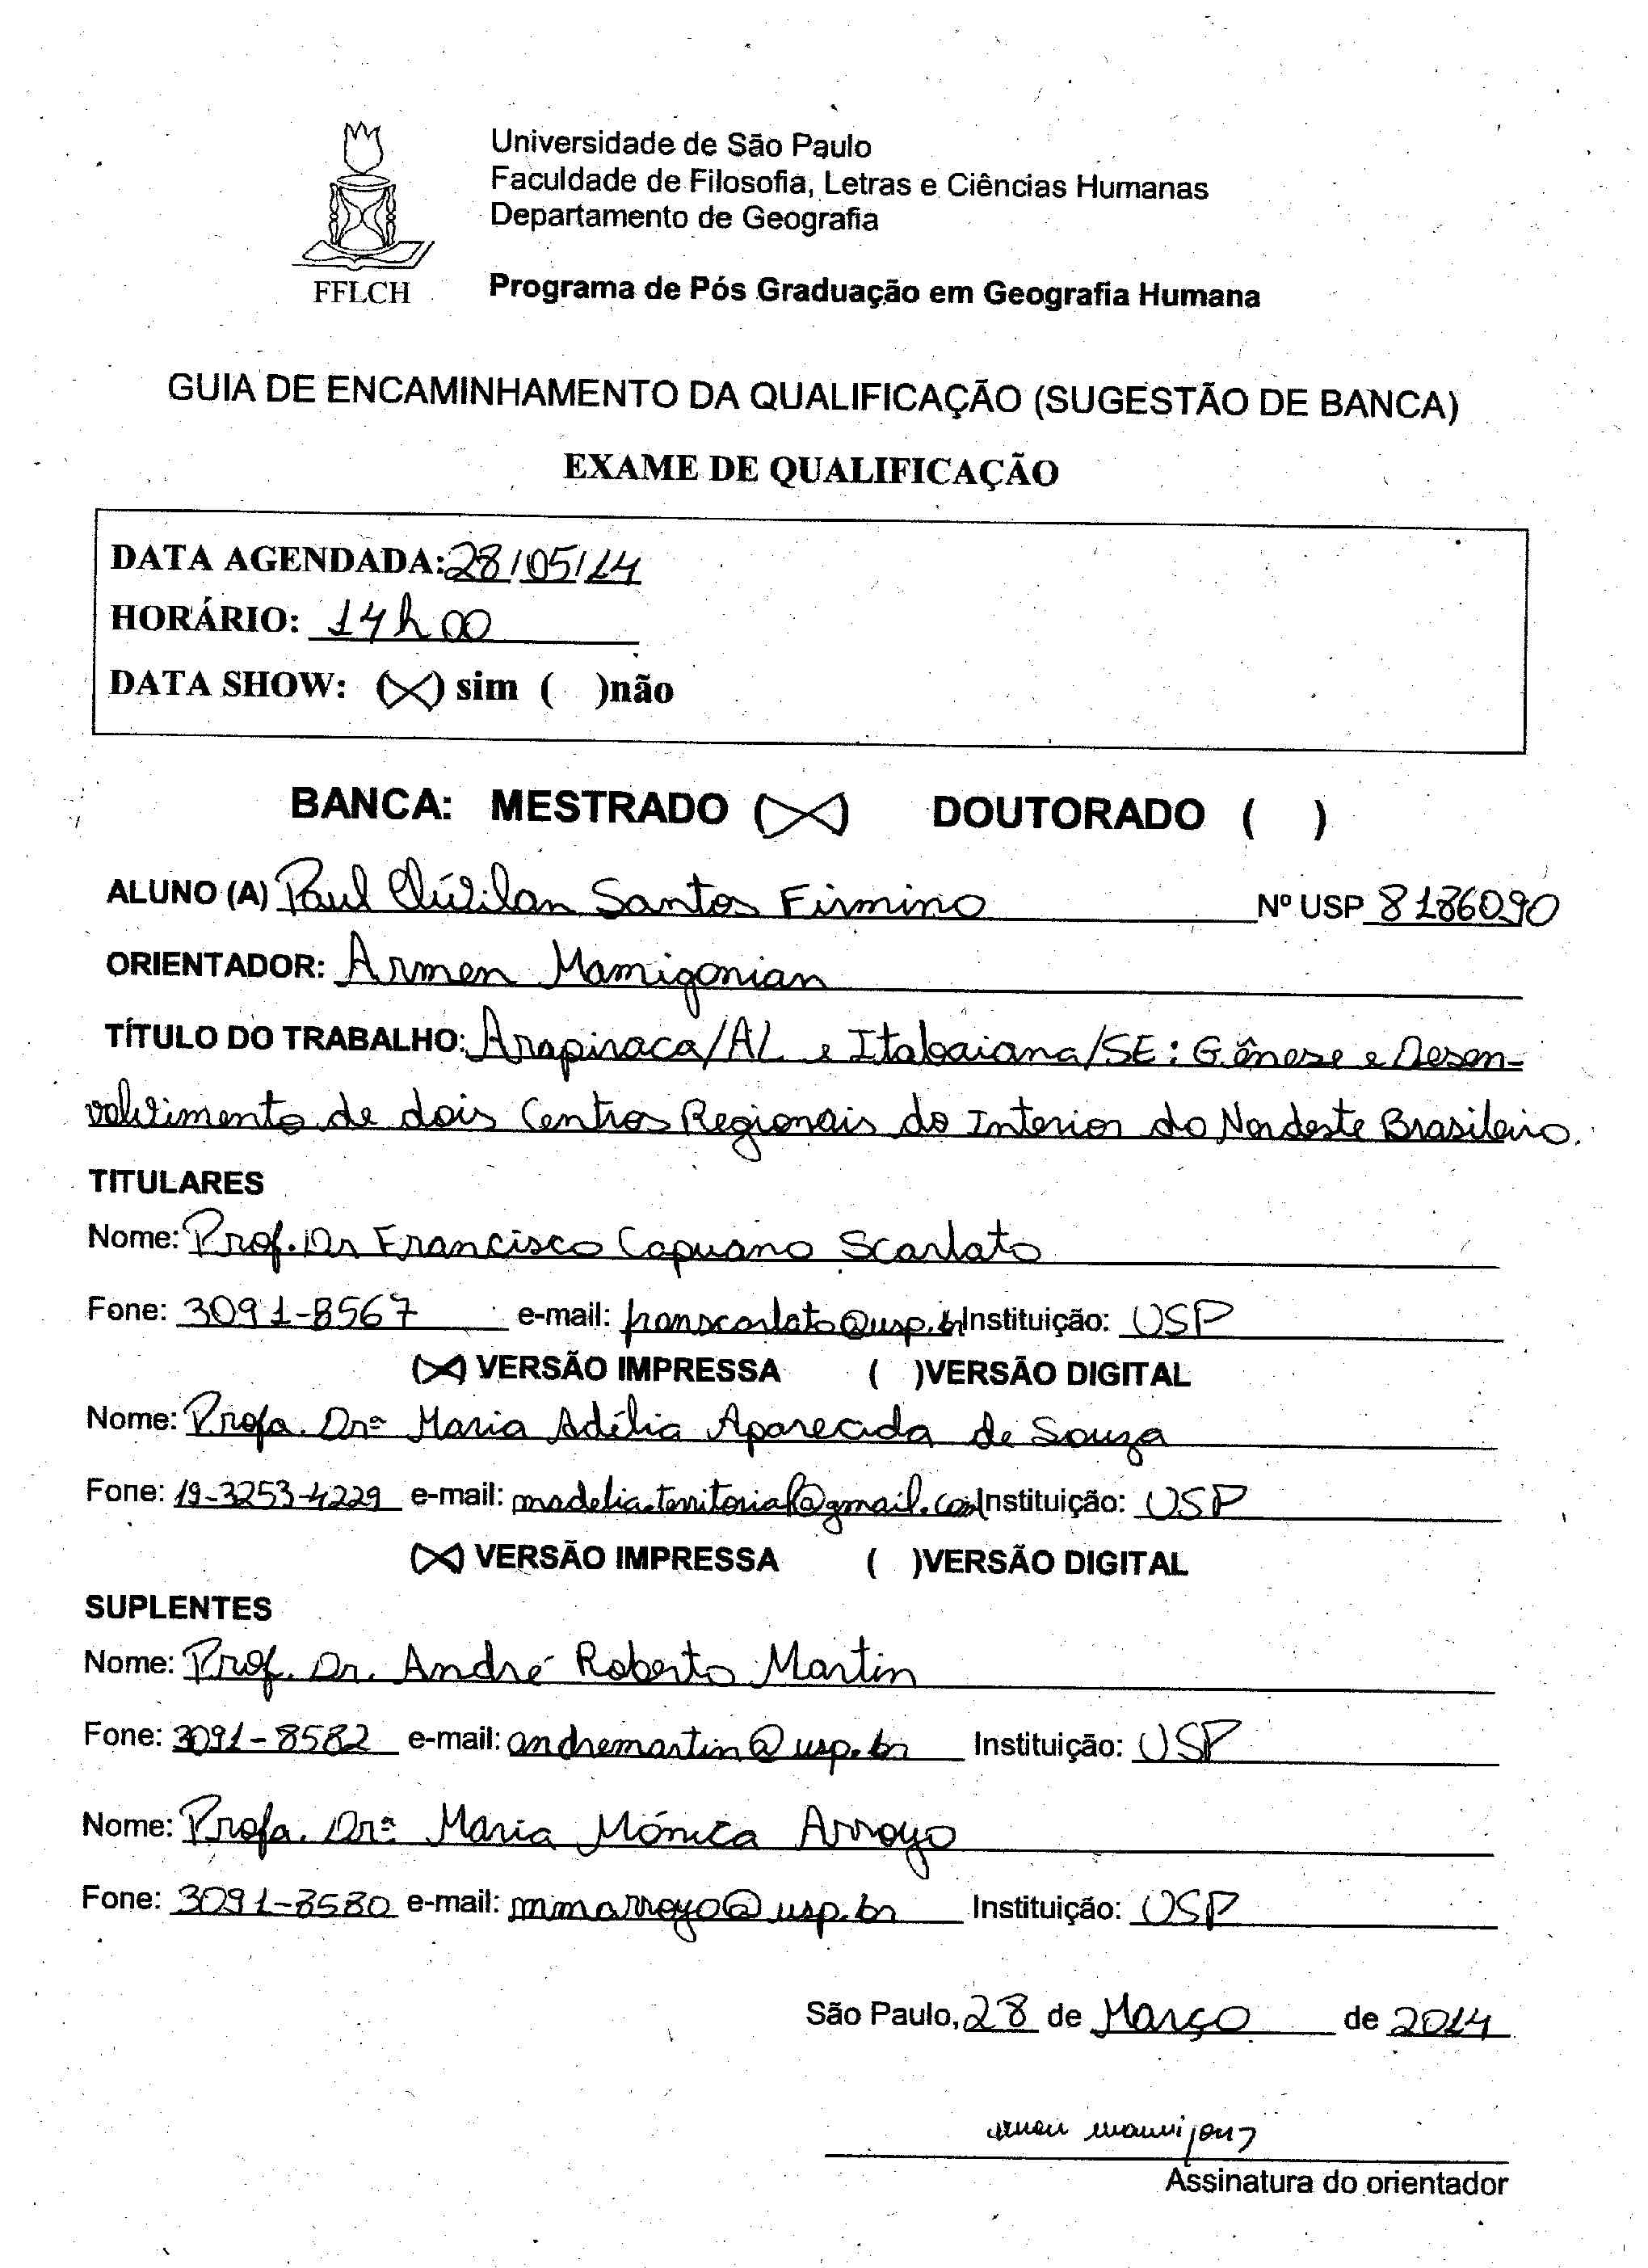 Universidade de São Paulo
Faculdade de Filosofia, Letras e Ciências Humanas
Departamento de Geografia
FFLCH
Programa de Pós Graduação em Geografia Humana
GUIA DE ENCAMINHAMENTO DA QUALIFICAÇÃO (SUGESTÃO DE BANCA)
EXAME DE QUALIFICAÇÃO
DATA AGENDADA: 28/05/14
HORÁRIO: 14h00
DATA SHOW: (X) sim ( )não
BANCA: MESTRADO (X) DOUTORADO ( )
ALUNO (A) Paul Clívilan Santos Firmino Nº USP 8186090
ORIENTADOR: Armen Mamigonian
TÍTULO DO TRABALHO: Arapiraca/AL e Itabaiana/SE: Gênese e Desen-
volvimento de dois Centros Regionais do Interior do Nordeste Brasileiro.
TITULARES
Nome: Prof. Dr Francisco Capuano Scarlato
Fone: 3091-8567 e-mail: franscarlato@usp.br Instituição: USP
(X) VERSÃO IMPRESSA ( )VERSÃO DIGITAL
Nome: Profa. Drª Maria Adélia Aparecida de Souza
Fone: 19-3253-4229 e-mail: madelia.territorial@gmail.com Instituição: USP
(X) VERSÃO IMPRESSA ( )VERSÃO DIGITAL
SUPLENTES
Nome: Prof. Dr. André Roberto Martin
Fone: 3091-8582 e-mail: andremartin@usp.br Instituição: USP
Nome: Profa. Drª Maria Mónica Arroyo
Fone: 3091-8580 e-mail: mmarroyo@usp.br Instituição: USP
São Paulo, 28 de Março de 2014
Assinatura do orientador